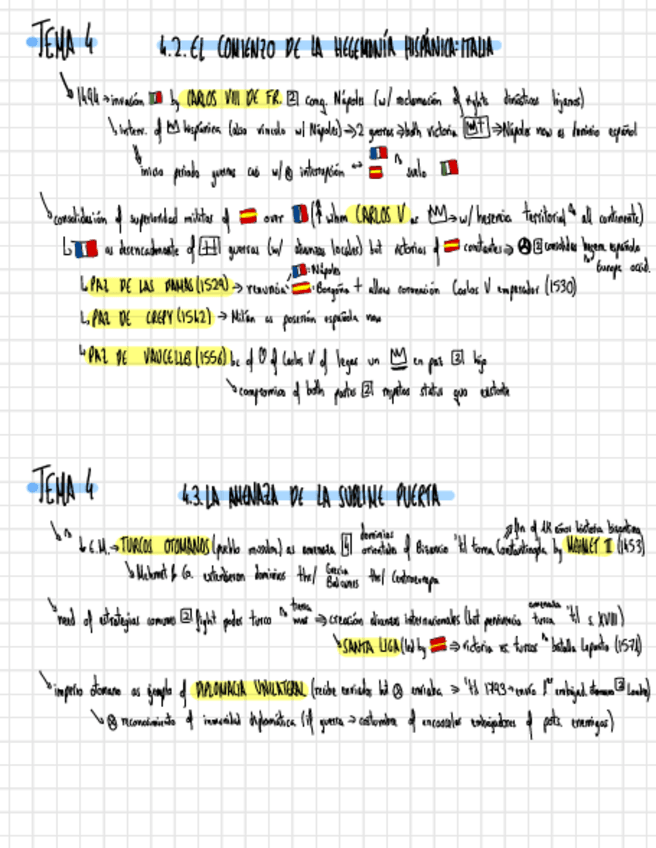 TEMA 4
4.2. EL COMIENZO DE LA HEGEMONÍA HISPÁNICA: ITALIA
1494 → invasión by CARLOS VIII DE FR. 2 conq. Nápoles (w/ reclamación of rights dinásticos lejanos)
interv. of hispánica (also vínculo w/ Nápoles) → 2 guerras → both victoria → Nápoles now as dominio español
inicio periodo guerras casi w/ interrupción ↔ suelo
consolidación of superioridad militar of over (when CARLOS V as → w/ herencia territorial all continente)
as desencadenante of guerras (w/ alianzas locales) but victorias of constantes ⇒ 2 consolidar hegem. española
Europe occid.
: Nápoles
PAZ DE LAS DAMAS (1529) → renuncia : Borgoña + allow coronación Carlos V emperador (1530)
PAZ DE CREPY (1542) → Milán as posesión española now
PAZ DE VAUCELLES (1556) bc of of Carlos V of legar un en paz 2 hijo
compromiso of both partes 2 respetar status quo existente
TEMA 4
4.3. LA AMENAZA DE LA SUBLIME PUERTA
fin of años historia bizantina
E.M. → TURCOS OTOMANOS (pueblo ) as amenaza dominios orientales of Bizancio 'til toma Constantinopla by MEHMET II (1453)
Mehmet & Co. extendieron dominios thr/ Grecia Balcanes thr/ Centroeuropa
need of estrategias comunes 2 fight poder turco tierra mar ⇒ creación alianzas internacionales (but pervivencia amenaza turca 'til s. XVIII)
SANTA LIGA (led by ⇒ victoria vs. turcos batalla Lepanto (1571)
imperio otomano as ejemplo of DIPLOMACIA UNILATERAL (recibe enviados but enviaba ⇒ 'til 1793 → envía 1er embajad. 2 Londres)
reconocimiento of inmunidad diplomática (if guerra → costumbre of encarcelar embajadores of pots. enemigas)